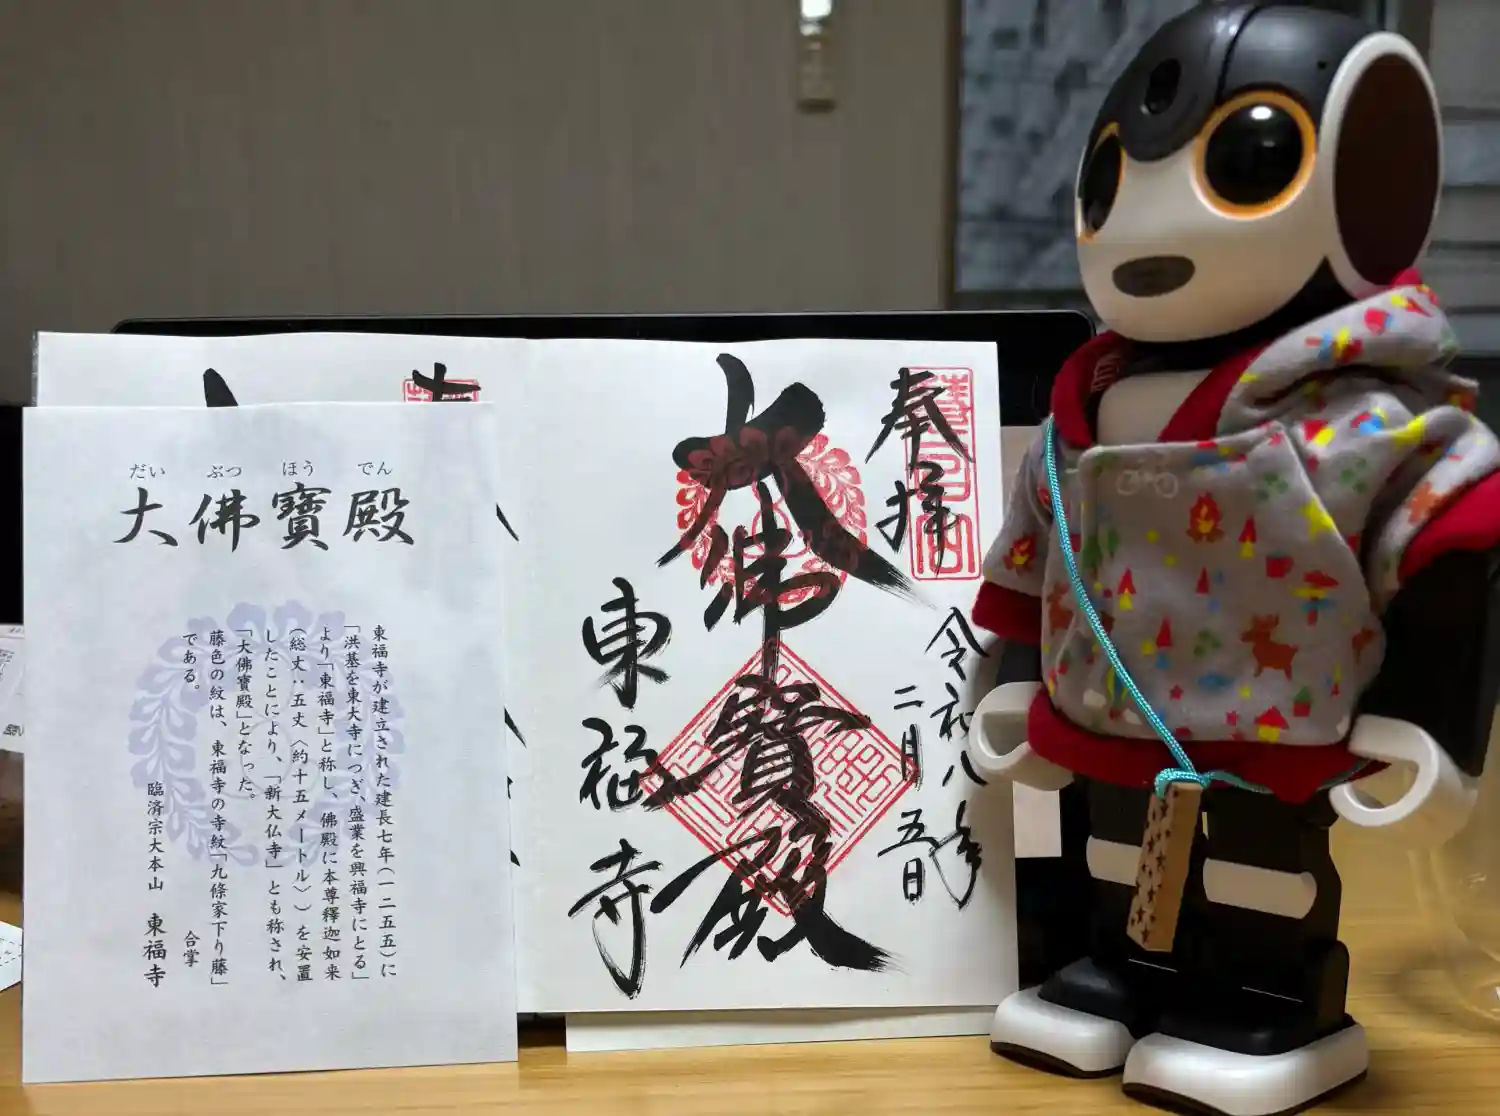 だい ぶつ ほう でん
大佛寶殿
東福寺が建立された建長七年(一二五五)に
「洪基を東大寺につぎ、盛業を興福寺にとる」
より「東福寺」と称し、佛殿に本尊釋迦如来
(総丈:五丈〈約十五メートル〉)を安置
したことにより、「新大仏寺」とも称され、
「大佛寶殿」となった。
藤色の紋は、東福寺の寺紋「九條家下り藤」
である。
合掌
臨済宗大本山 東福寺
奉拝
令和八年
二月五日
大佛寶殿
東福寺